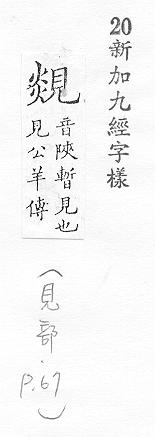 20新加九經字樣
覢
音陝暫見也
見公羊傳
(見部.p.67)